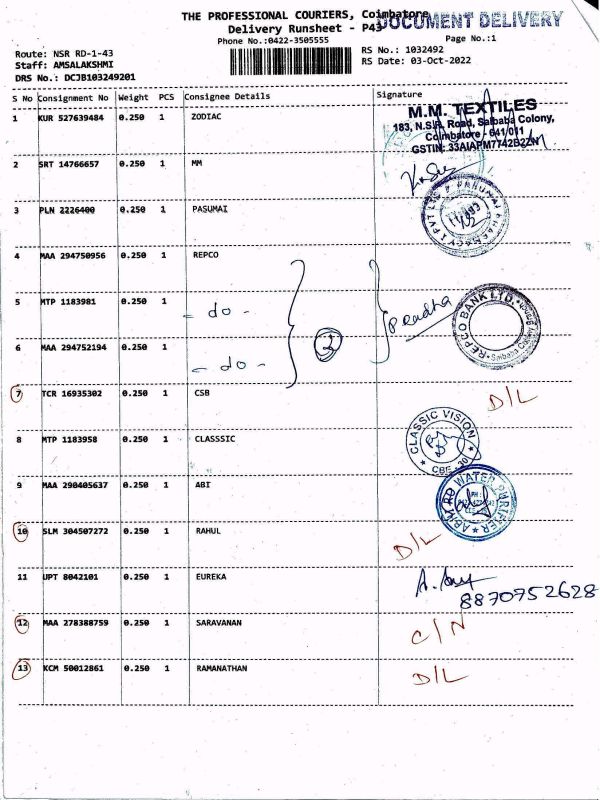 THE PROFESSIONAL COURIERS, Coimbatore
DOCUMENT DELIVERY
Delivery Runsheet - P43
Phone No.:0422-3505555
Page No.:1
Route: NSR RD-1-43
RS No.: 1032492
Staff: AMSALAKSHMI
RS Date: 03-Oct-2022
DRS No.: DCJB103249201
S No Consignment No Weight PCS Consignee Details Signature
1 KUR 527639484 0.250 1 ZODIAC
M.M. TEXTILES
183, N.S.R. Road, Saibaba Colony,
Coimbatore - 641 011
GSTIN: 33AIAPM7742B2ZN
2 SRT 14766657 0.250 1 MM
3 PLN 2226400 0.250 1 PASUMAI
4 MAA 294750956 0.250 1 REPCO
5 MTP 1183981 0.250 1 - do -
3
REPCO BANK LTD.
Saibaba Colony
6 MAA 294752194 0.250 1 - do -
7 TCR 16935302 0.250 1 CSB D/L
8 MTP 1183958 0.250 1 CLASSSIC
CLASSIC VISION
CBE
9 MAA 290405637 0.250 1 ABI
WATER PURIFIER
10 SLM 304507272 0.250 1 RAHUL D/L
11 UPT 8042101 0.250 1 EUREKA
8870752628
12 MAA 278388759 0.250 1 SARAVANAN C/N
13 KCM 50012861 0.250 1 RAMANATHAN D/L